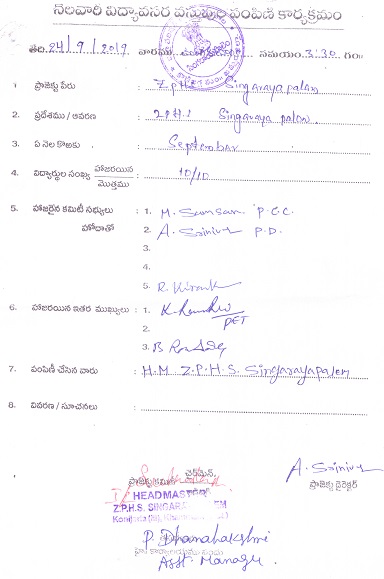 నెలవారీ విద్యావసర వస్తువుల పంపిణీ కార్యక్రమం
తేది. 24/9/2019 వారము సమయం. 3:30 గం॥
1 ప్రాజెక్టు పేరు : ZPHS Singarayapalem
2. ప్రదేశము / ఆవరణ : ZPHS Singarayapalem
3. ఏ నెల కొఱకు : September
4. విద్యార్థుల సంఖ్య హాజరయిన / మొత్తము : 10/10
5. హాజరైన కమిటీ సభ్యులు : 1. M. Samson P.C.C.
హోదాతో 2. A. Srinivas P.D.
3.
4.
5. R. Kiran
6. హాజరయిన ఇతర ముఖ్యులు : 1. K.
PET
2.
3. B
7. పంపిణీ చేసిన వారు : H.M. Z.P.H.S. Singarayapalem
8. వివరణ / సూచనలు :
ఛైర్మన్,
A. Srinivas
ప్రాజెక్టు కమిటీ
ప్రాజెక్టు డైరెక్టర్
HEADMASTER
Z.P.H.S. SINGARAYAPALEM
P. Dhanalakshmi
Asst. Manager